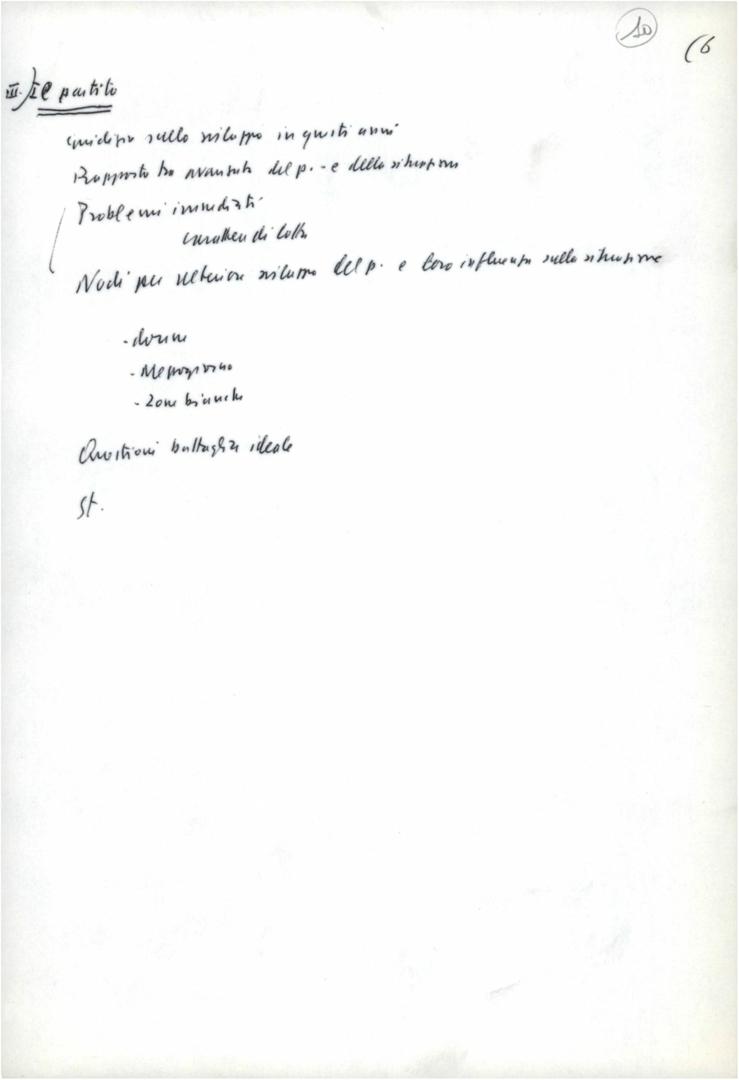 10
(6
III.) Il partito
Giudizio sullo sviluppo in questi anni
Rapporto tra avanzata del p. - e della situazione
Problemi immediati
carattere di lotta
Nodi per ulteriore sviluppo del p. e loro influenza sulla situazione
- donne
- Mezzogiorno
- Zone bianche
Questioni battaglia ideale
St.